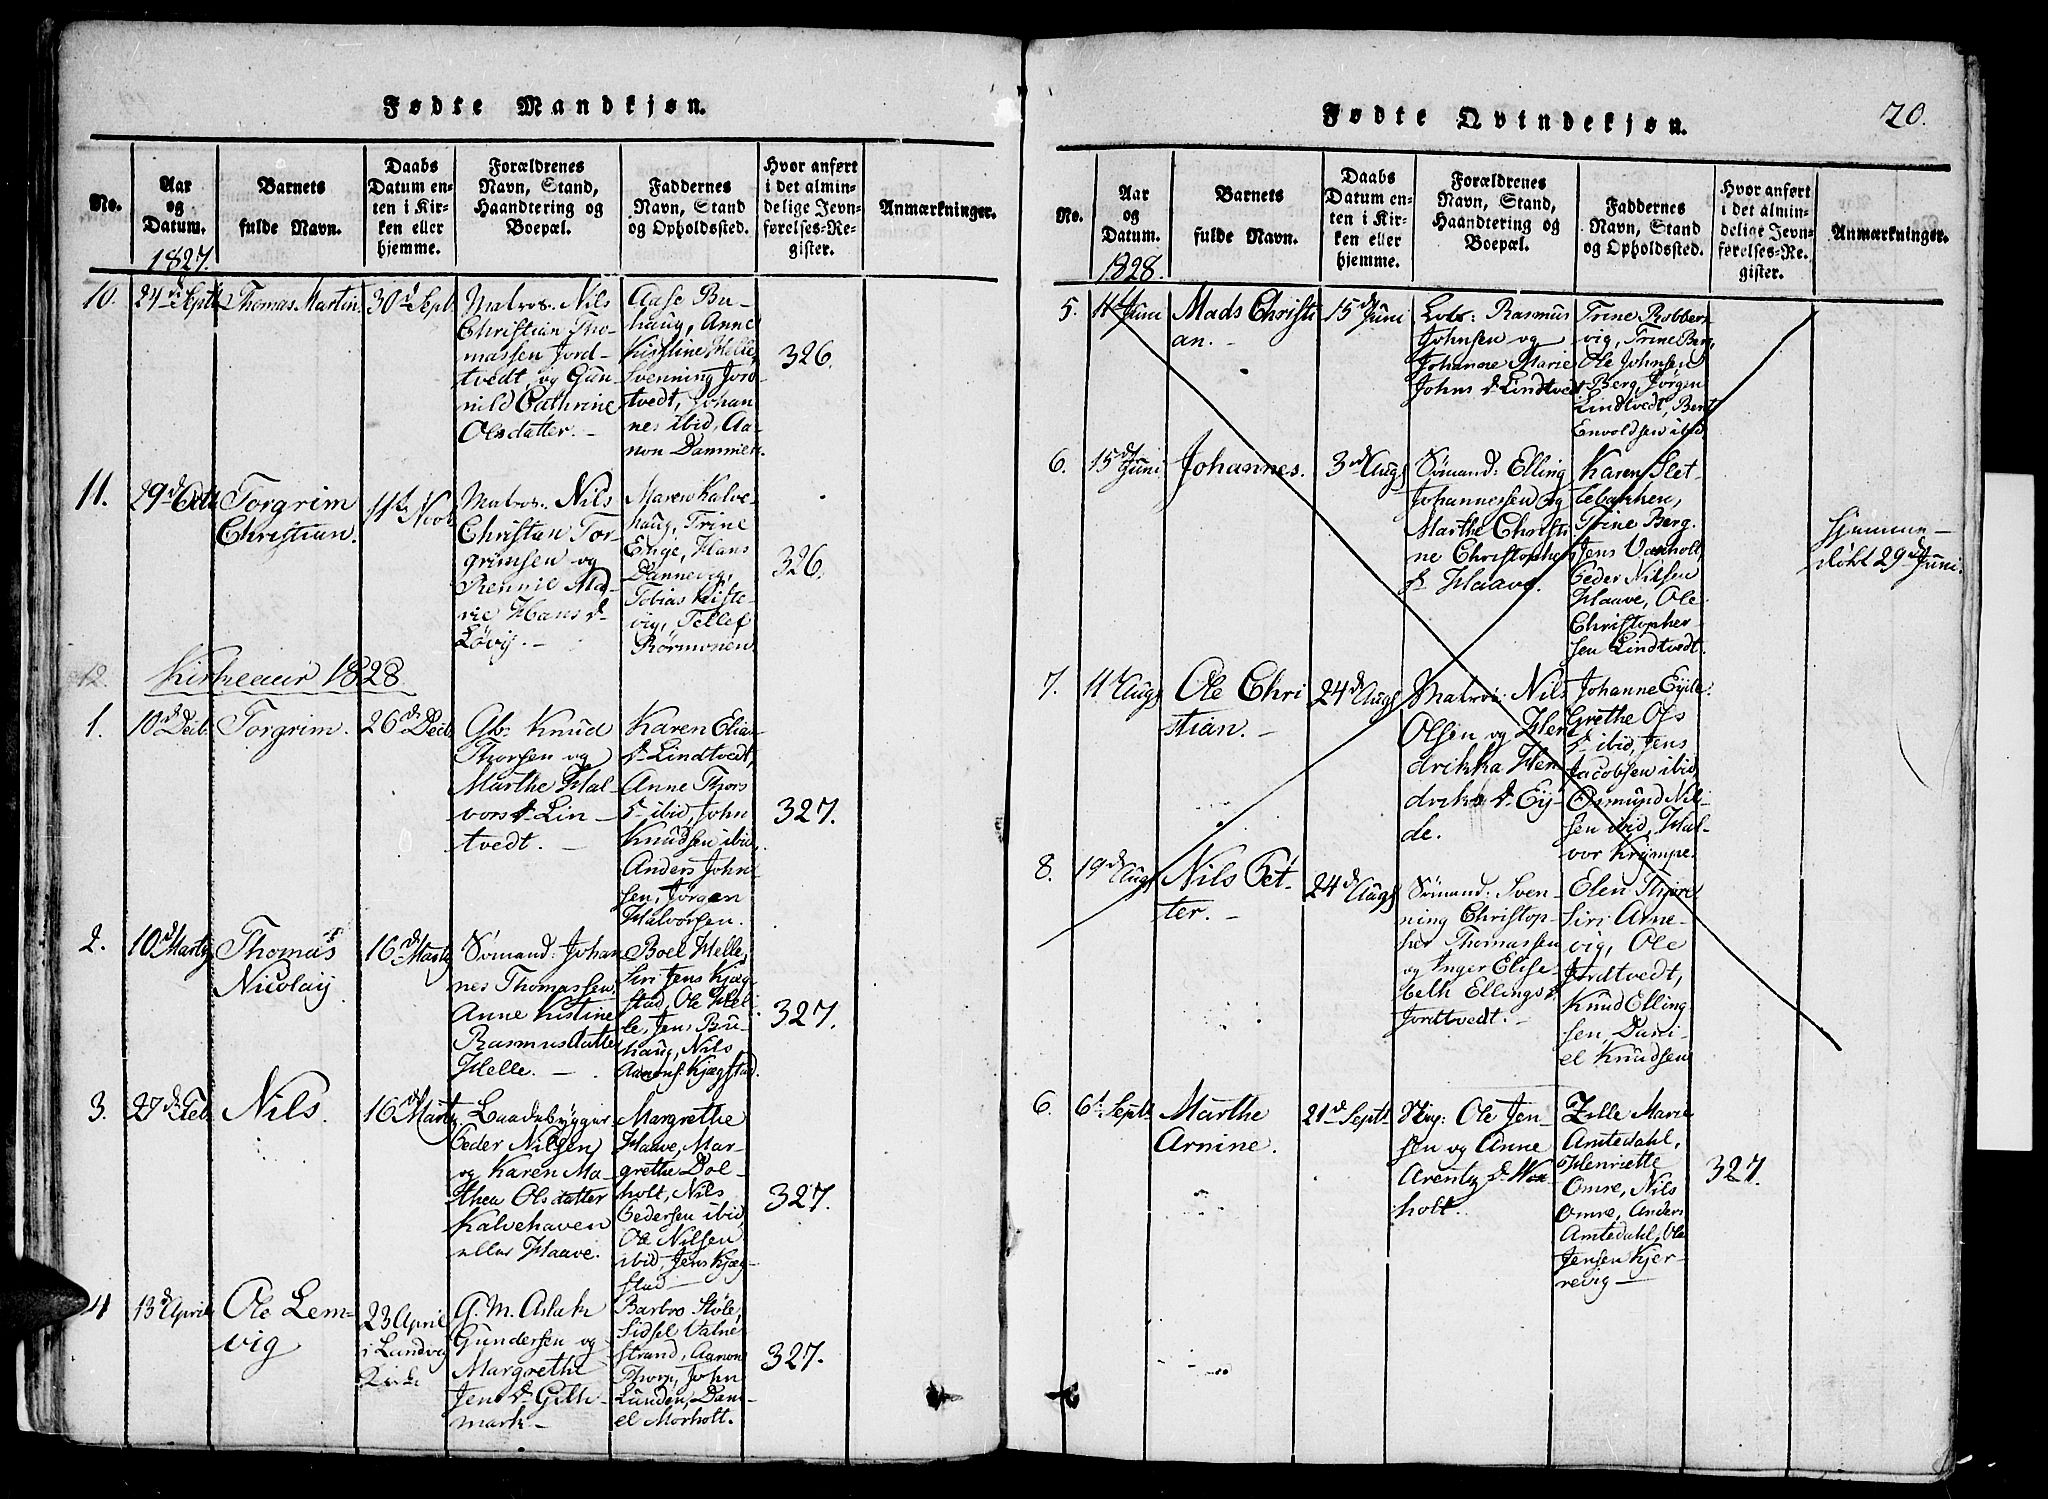 Fødte Mandkjøn.
No.
Aar
og
Datum.
Barnets
fulde Navn.
Daabs
Datum en-
ten i Kir-
ken eller
hjemme.
Forældrenes
Navn, Stand,
Haandtering og
Boepæl.
Faddernes
Navn, Stand
og Opholdssted.
Hvor anført
i det almin-
delige Jevn-
førelses-Re-
gister.
Anmærkninger.
1827.
10.
24de Septb
Thomas Martin
30d Septb
Matros: Nils
Christian Tho-
massen Jord-
tvedt, og Gun-
nild Cathrine
Olsdatter. -
Aase Bu-
haug, Anne
Kistine Helle,
Svenning Jord-
tvedt, Johan
nes ibid, Aa-
non Dammen.
326.
11.
29d Octb
Torgrim
Christian.
11te Novb
Matros: Nils
Christian Tor-
grimsen og
Rennie Ma-
rie Hans d.
Løvig. -
Maren Kalve-
haug, Trine
Enge, Hans
Dannevig,
Tobias Kiste-
vig, Tellef
Rørmonen
326.
12.
Kirkeaar 1828.
1.
10d Decb.
Torgrim.
26d Decb.
Gb: Knud
Thorsen og
Marthe Hal-
vors d. Lin-
tvedt. -
Karen Elia-
d. Lindtvedt,
Anne Thors
d. ibid, John
Knudsen ibid,
Anders John-
sen, Jørgen
Halvorsen.
327.
2.
10d Martz
Thomas
Nicolaij
16d Martz
Sømand: Johan
nes Thomassen,
Anne Kistine
Rasmusdatter
Helle. -
Boel Helle,
Siri Jens Kjæg-
stad, Ole Hel-
le, Jens Bu-
haug, Nils
Aanons. Kjægstad.
327.
3.
27d Feb.
Nils.
16d Martz
Baadsbygger
Peder Nilsen
og Karen Ma-
thea Olsdatter
Kalvehaven
eller Haave.
Margrethe
Haave, Mar-
grethe Dol-
holt, Nils
Pedersen ibid,
Ole Nilsen
ibid, Jens Kjæg-
stad
327.
4
13d April
Ole Lem-
vig
23 April
i Landvig
Kirke
G. M. Aslak
Gundersen og
Margrethe
Jens d. Gith-
mark -
Barbro Støle,
Sidsel Valne
strand, Aanon
Thorp, John
Lunden, Dani-
el Morholt.
327.
Fødte Qvindekjøn.
20.
No.
Aar
og
Datum.
Barnets
fulde Navn.
Daabs
Datum en-
ten i Kir-
ken eller
hjemme.
Forældrenes
Navn, Stand,
Haandtering og
Boepæl.
Faddernes
Navn, Stand
og Opholdssted.
Hvor anført
i det almin-
delige Jevn-
førelses-Re-
gister.
Anmærkninger.
1828.
5.
11te Juni
Mads Christi
an. -
15d Juni
Lods: Rasmus
Johnsen og
Johanne Marie
Johns d. Lindtvedt
Trine Robbers-
vig, Trine Berg,
Ole Johnsen
Berg, Jørgen
Lindtvedt, Bent
Envoldsen ibid.
6.
15d Juni
Johannes.
3d Augs
Sømand: Elling
Johannessen og
Marthe Christi
ne Christophers
d. Haave.
Karen Slet-
tebakken,
Trine Berg.
Jens Vaxholt,
Peder Nilsen
Haave, Ole
Christopher-
sen Lindtvedt.
Hjemme-
døbt 29d Juni.
7.
11te Augs
Ole Chri
stian. -
24d Augs
Matros: Nils
Olsen og Hen
drikka Hen
driks d. Eij-
de.
Johanne Eyde.
Grethe Ols
d. ibid, Jens
Jacobsen ibid,
Osmund Nil-
sen ibid, Hal-
vor Krympe.
8.
19d Augs
Nils Pet-
ter. -
24d Augs
Sømand: Sven-
ning Christop-
her Thomassen
og Inger Elise-
beth Ellings d.
Jordtvedt. -
Elen Thore
Siri Arne-
vig, Ole
Jordtvedt,
Knud Elling
sen, Dani-
el Knudsen
6.
6t Septb
Marthe
Arnine.
21d Septb
Ole Jen-
sen og Anne
Arentz d. Wax
holt.
Zille Marie
Amtedahl,
Henriette
Omre, Nils
Omre, Anders
Amtedahl, Ole
Jensen Kjer-
revig -
327.